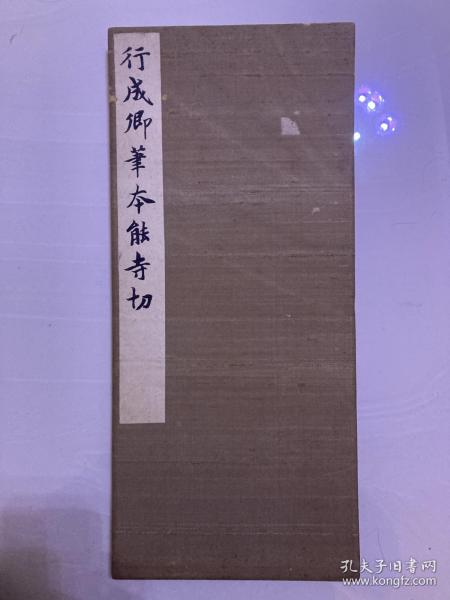 行成卿筆本能寺切
孔夫子旧书网
www.kongfz.com